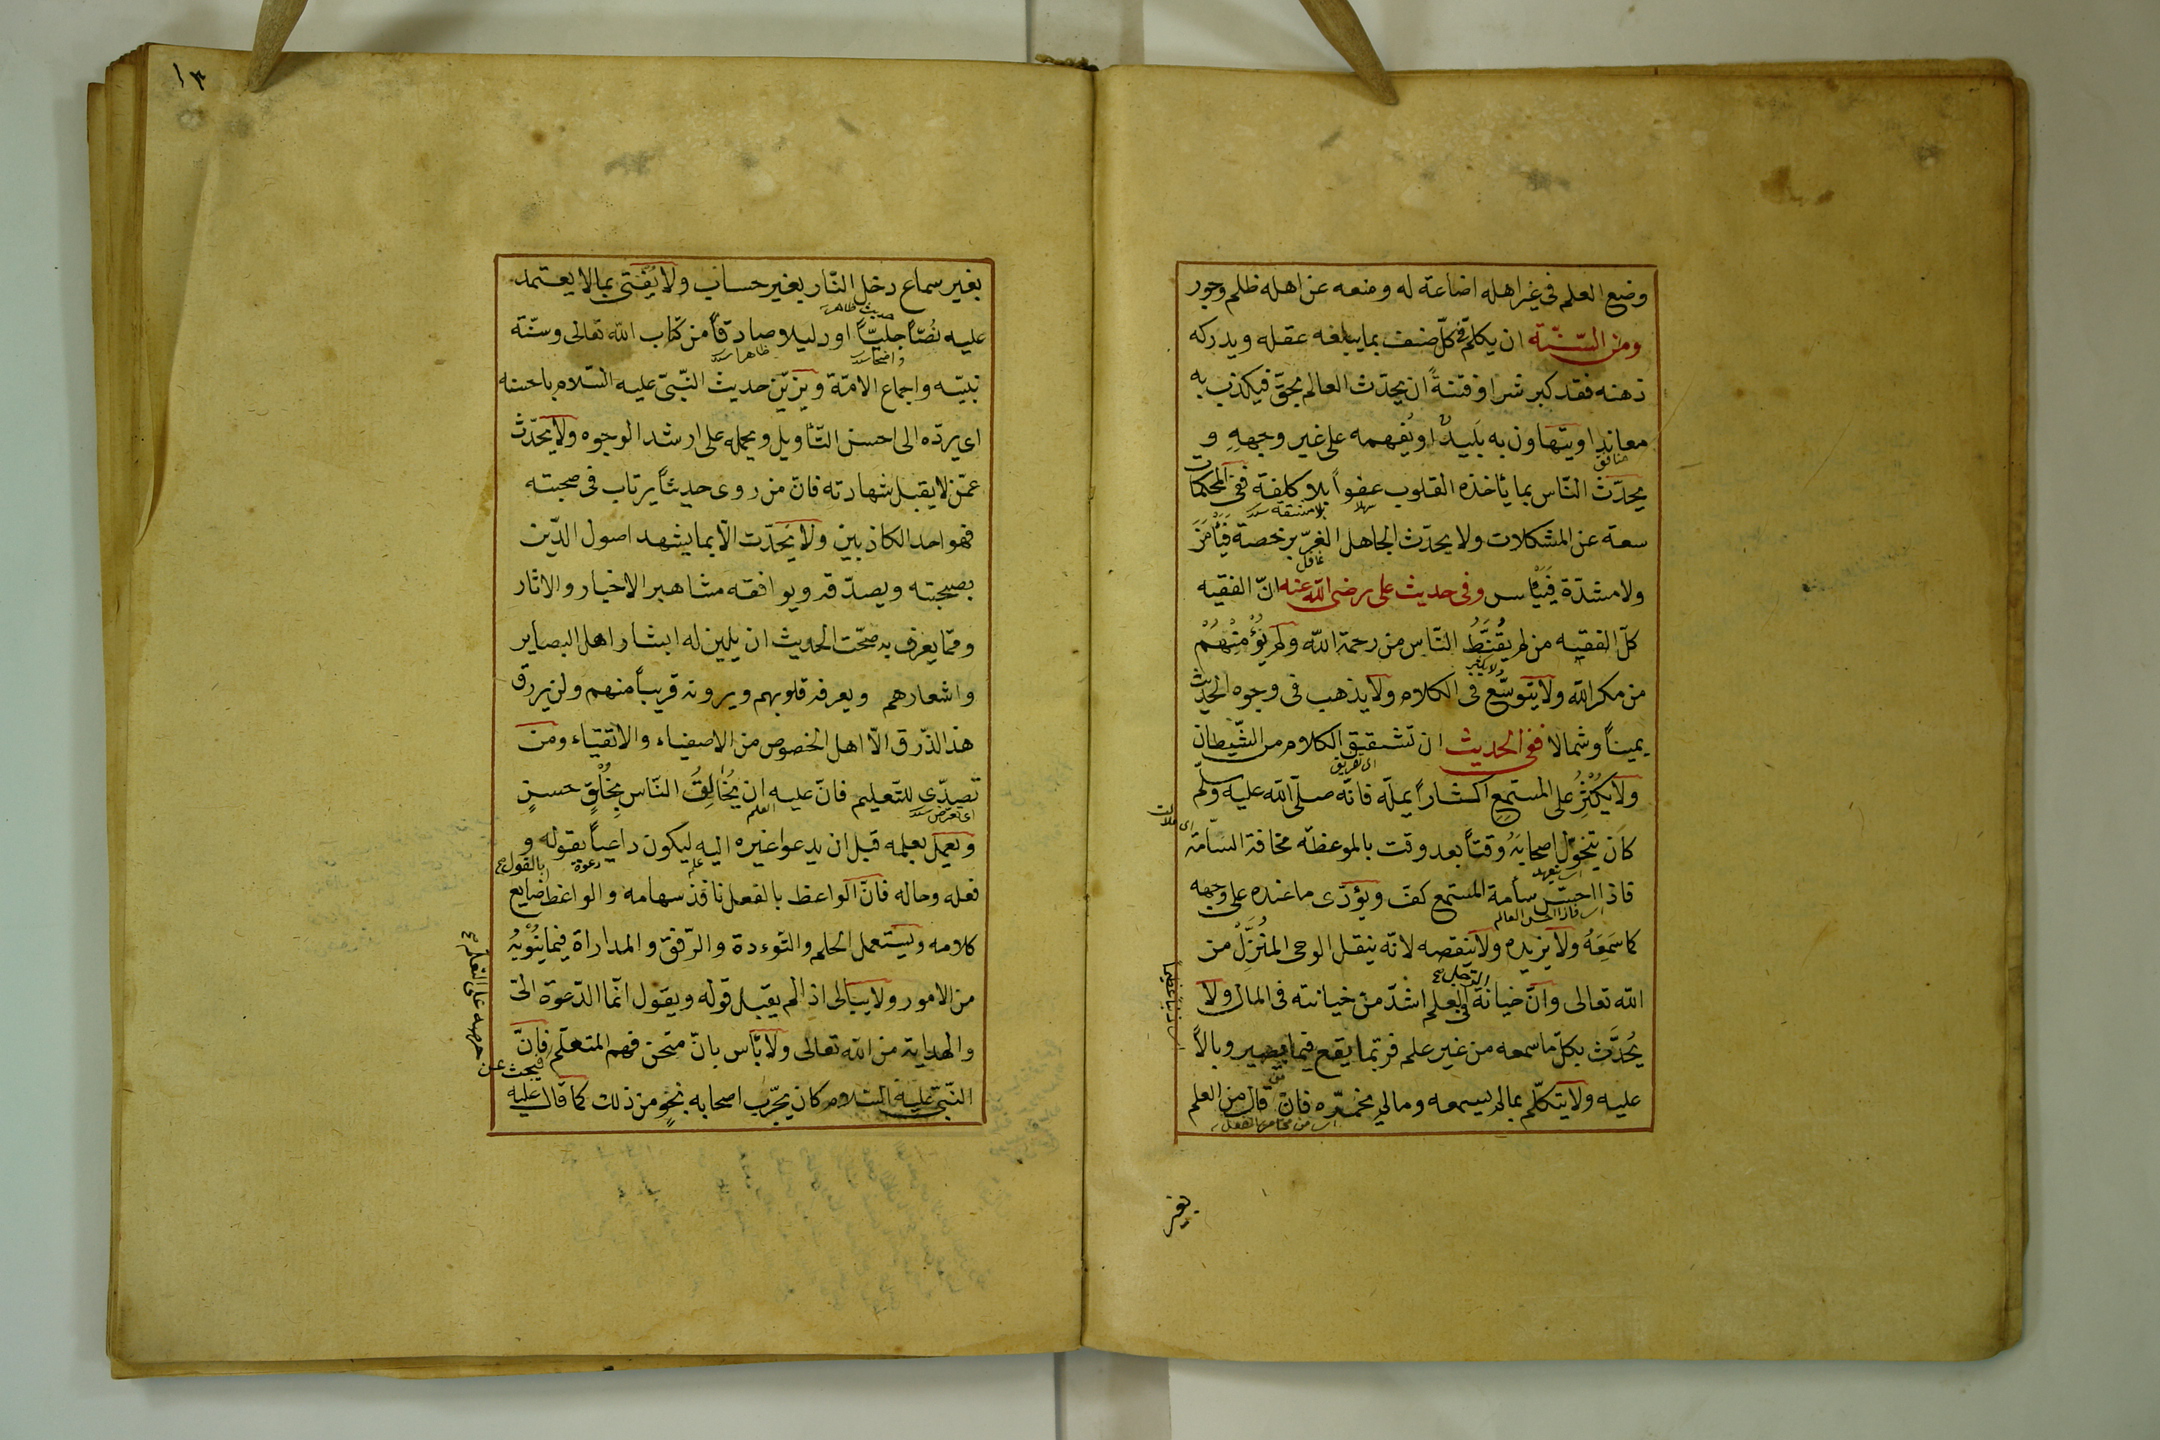 وضع العلم فى غير اهله اضاعة له ومنعه عن اهله ظلم وجور
ومن السّنّة ان يكلم فى كلّ صنف بما يبلغه عقله ويدركه
ذهنه فقد كبر شرا وفتنةً ان يحدّث العالم بحقّ فيكذب به
معاندا ويتهاون به بَليدٌ او يفهمه على غير وجههِ و
منافق
يحدّث النّاس بما يأخذه القلوب عفواً بلا كلفة ففى المحكمات
سهلا بلا مشقه
سعة عن المشكلات ولا يحدّث الجاهل الغرّ برخصة فَيَأْمَنَ
غافل
ولا مشدّة فَيَيْأس وفى حديث على رضى اللّه عنه انّ الفقيه
كلّ الفقيه من لم يُقَنِّطُ النّاس من رحمة اللّه ولم يُؤْمِنْهُمْ
ولا يكثر
من مكر اللّه ولا يتوسّع فى الكلام ولا يذهب فى وجوه الحديث
يميناً وشمالا ففى الحديث ان تشقيق الكلام من الشّيطان
اى تفريق
ولا يُكْثِرُ على المستمعِ اكثاراً يملّه فانّه صلّى اللّه عليه وسلّم
كانَ يتخوّل اصحابَهُ وقتاً بعد وقت بالموعظة مخافة السّآمة
اى ملالت
اى يتعهد
فاذا احسّ سأمة المستمع كفّ ويؤدّى ما عنده على وجهه
اى فاذا احسّ العالم
كما سَمِعَهُ ولا يزيده ولا ينقصه لانّه ينقل الوحى المُنَزَّلْ من
اللّه تعالى وانّ خيانة الرّجل فى العلم اشدّ من خيانته فى المال ولا
يُحدّث بكلّ ما سمعه من غير علم فربّما يقع فيما يصير وبالاً
عليه ولا يتكلّم بما لم يسمعه وما لم يخمّره فانّ قال من العلم
بغير
١٣
بغير سماع دخل النّار بغير حساب ولا يُفتى بما لا يعتمد
حديث ظاهر
عليه نُصّاً جليّاً او دليلا صادقاً من كتاب اللّه تعالى وسنّة
واضحا ظاهرا
نبيّه واجماع الامّة ويزيّن حديث النّبىّ عليه السّلام باحسنه
اى يردّه الى احسن التّأويل ويحمله على ارشد الوجوه ولا يحدّث
عمّن لا يقبل شهادته فانّ من روى حديثاً يرتاب فى صحبته
فهو احد الكاذبين ولا يُحدّث الّا بما يشهد اصول الدّين
بصحبته ويصدّقه ويوافقه مشاهير الاخبار والاثار
وممّا يعرف به صحّت الحديث ان يلين له ابشار اهل البصاير
واشعارهم ويعرفه قلوبهم ويرونه قريباً منهم ولن يرزق
هذا الذّرق الّا اهل الخصوص من الاصفياء والاتقياء ومن
تصدّى للتّعليم فانّ عليه ان يُخالِقُ النّاس بِخُلْقٍ حسنٍ
اى تعرض العلم
ويعمل بعلمه قبل ان يدعوا غيره اليه ليكون داعياً بقوله و
علم دعوة بالقول
فعله وحاله فانّ الواعظ بالفعل نافذ سهامه والواعظ ضايع
كلامه ويستعمل الحلم والتّوءدة والرّفق والمداراة فيما ينُوْبُهُ
من الامور ولا يبالى اذا لم يقبل قوله ويقول انّما الدّعوة الىّ
والهداية من اللّه تعالى ولا بأس بانّ متحن فهم المتعلّم فانّ
فيحث عن حرصه على التعلم
النّبىّ عليه السّلام كان يجرّب اصحابه بنحوٍ من ذلك كما قال عليه